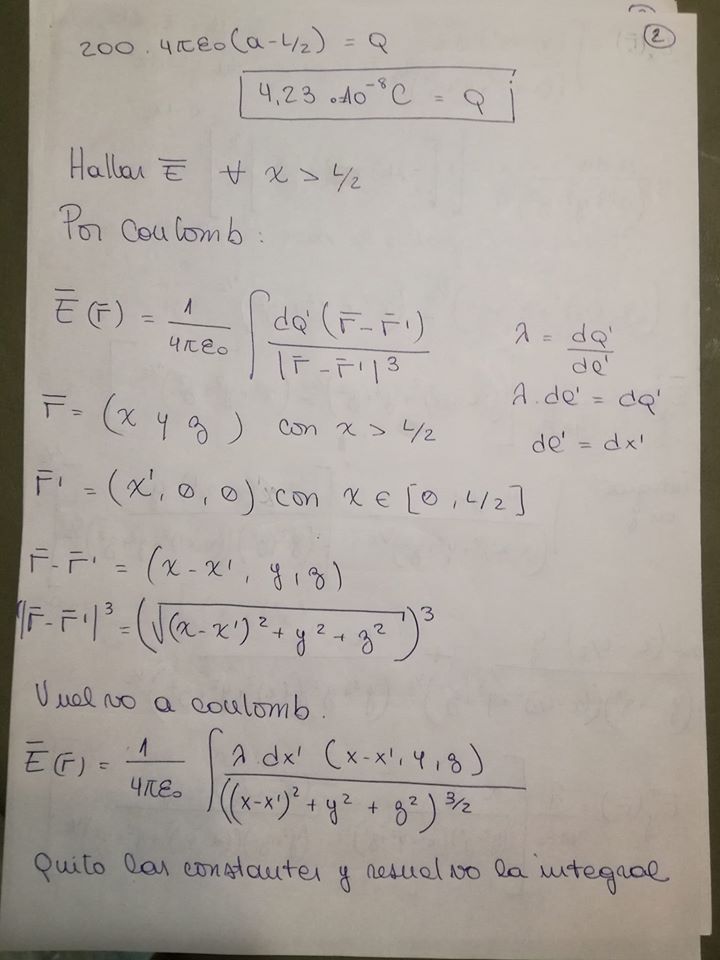 ②
200 . 4πε₀(a-L/2) = Q
4,23 .10⁻⁸ C = Q
Hallar E̅ ∀ x > L/2
Por Coulomb:
E̅(r̅) = 1/4πε₀ ∫ dQ' (r̅ - r̅')/|r̅ - r̅'|³
λ = dQ'/dl'
λ.dl' = dQ'
r̅ = (x y z) con x > L/2
dl' = dx'
r̅' = (x', 0, 0) con x ∈ [0, L/2]
r̅-r̅' = (x-x', y, z)
|r̅-r̅'|³ = (√(x-x')² + y² + z²)³
Vuelvo a coulomb.
E̅(r̅) = 1/4πε₀ ∫ λ.dx' (x-x', y, z)/((x-x')² + y² + z²)^3/2
Quito las constantes y resuelvo la integral